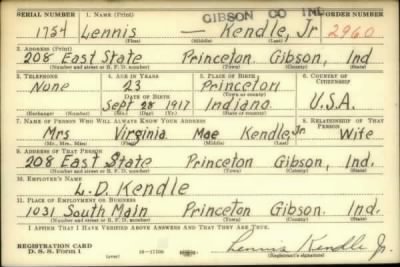 GIBSON CO IND
SERIAL NUMBER 1. NAME (Print) ORDER NUMBER
1754 Lennis — Kendle, Jr 2960
(First) (Middle) (Last)
2. ADDRESS (Print)
208 East State Princeton Gibson, Ind
(Number and street or R. F. D. number) (Town) (County) (State)
3. TELEPHONE 4. AGE IN YEARS 5. PLACE OF BIRTH 6. COUNTRY OF CITIZENSHIP
None 23 Princeton
DATE OF BIRTH (Town or county)
Sept 28 1917 Indiana U.S.A.
(Mo.) (Day) (Yr.) (State or country)
7. NAME OF PERSON WHO WILL ALWAYS KNOW YOUR ADDRESS 8. RELATIONSHIP OF THAT PERSON
Mrs Virginia Mae Kendle, Jr. Wife
(Mr., Mrs., Miss) (First) (Middle) (Last)
9. ADDRESS OF THAT PERSON
208 East State Princeton Gibson, Ind.
(Number and street or R. F. D. number) (Town) (County) (State)
10. EMPLOYER'S NAME
L. D. Kendle
11. PLACE OF EMPLOYMENT OR BUSINESS
1031 South Main Princeton Gibson. Ind.
(Number and street or R. F. D. number) (Town) (County) (State)
I AFFIRM THAT I HAVE VERIFIED ABOVE ANSWERS AND THAT THEY ARE TRUE.
REGISTRATION CARD
D. S. S. Form 1 (over) Lennis Kendle Jr.
(Registrant's signature)